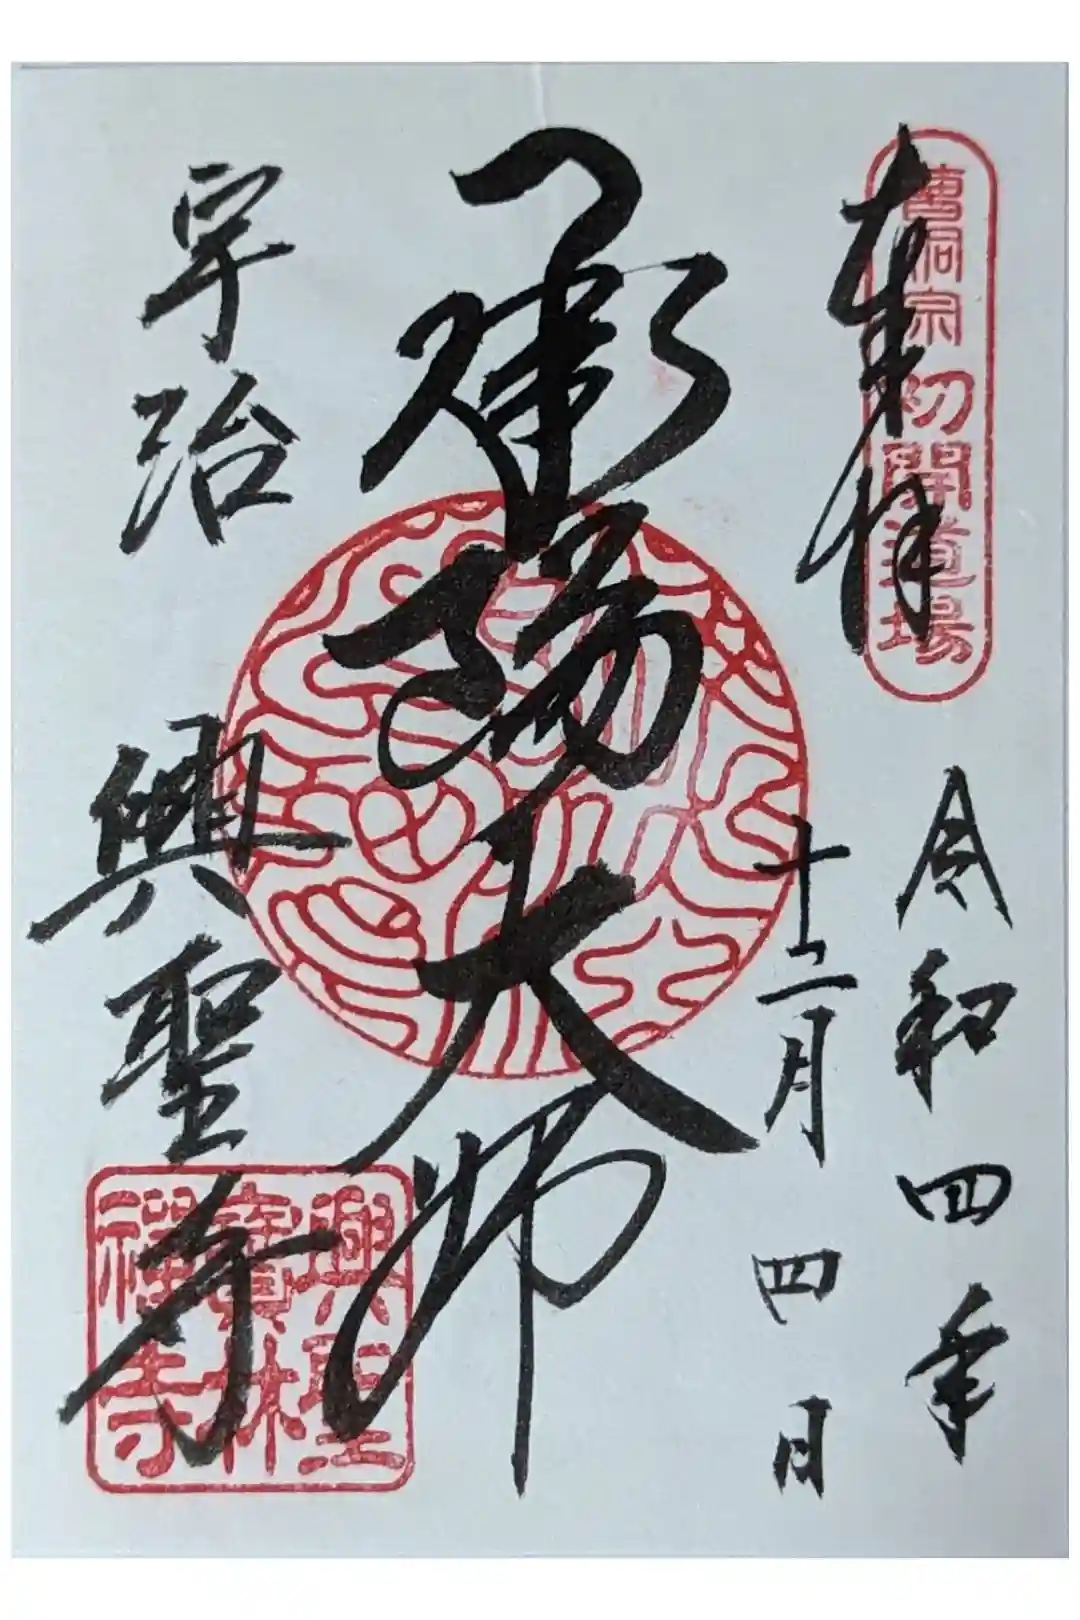 奉拝
曹洞宗初開道場
令和四年
十二月四日
承陽大師
宇治
興聖寺
興聖
寶林
禅寺